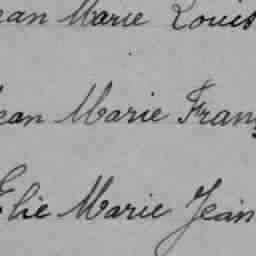 ean Marie Louis
ean Marie Fran
Elie Marie Jean